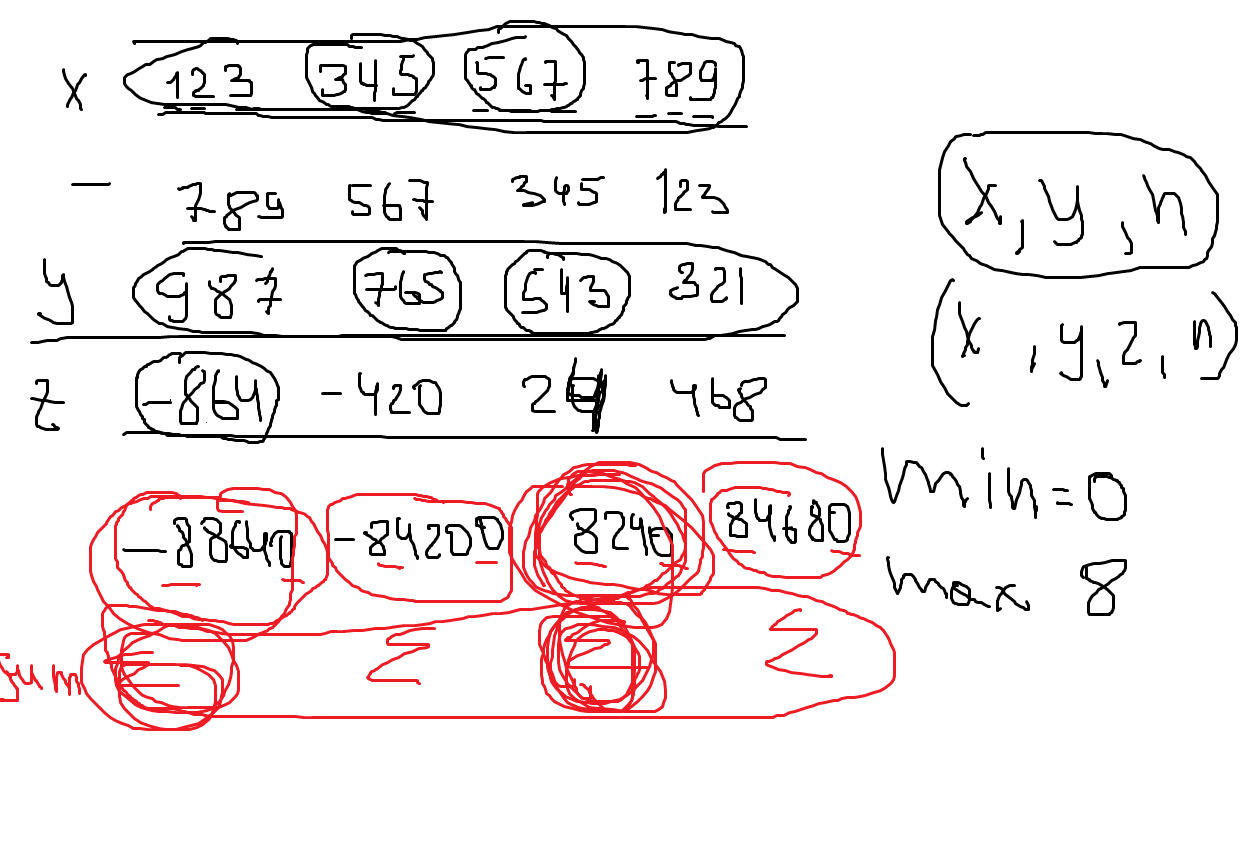 x 123 345 567 789
- 789 567 345 123
y 987 765 543 321
z -864 -420 24 468
-88640 -84200 8240 84680
sum Σ Σ Σ Σ
x, y, n
(x, y, z, n)
min=0
max 8